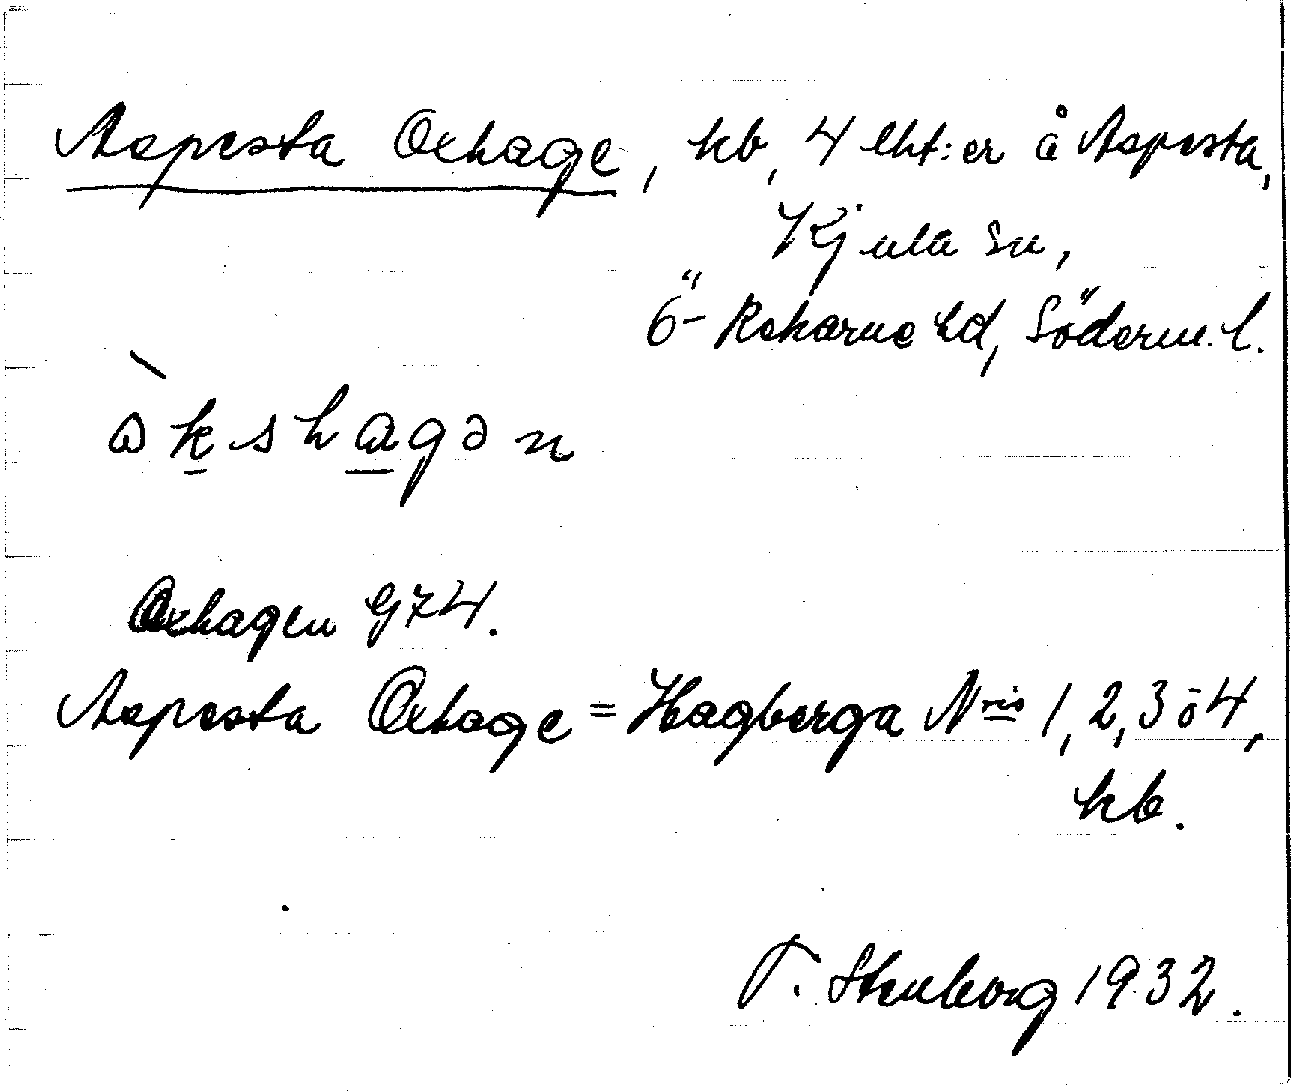 Aspesta Oxhage, hb, 4 lht:er å Aspesta,
Kjula sn,
Ö-Rekarne hd, Söderm. l.
ò̀kshagən
Oxhagen G74.
Aspesta Oxhage = Hagberga N:ris 1, 2, 3 o 4,
hb.
T. Stenborg 1932.